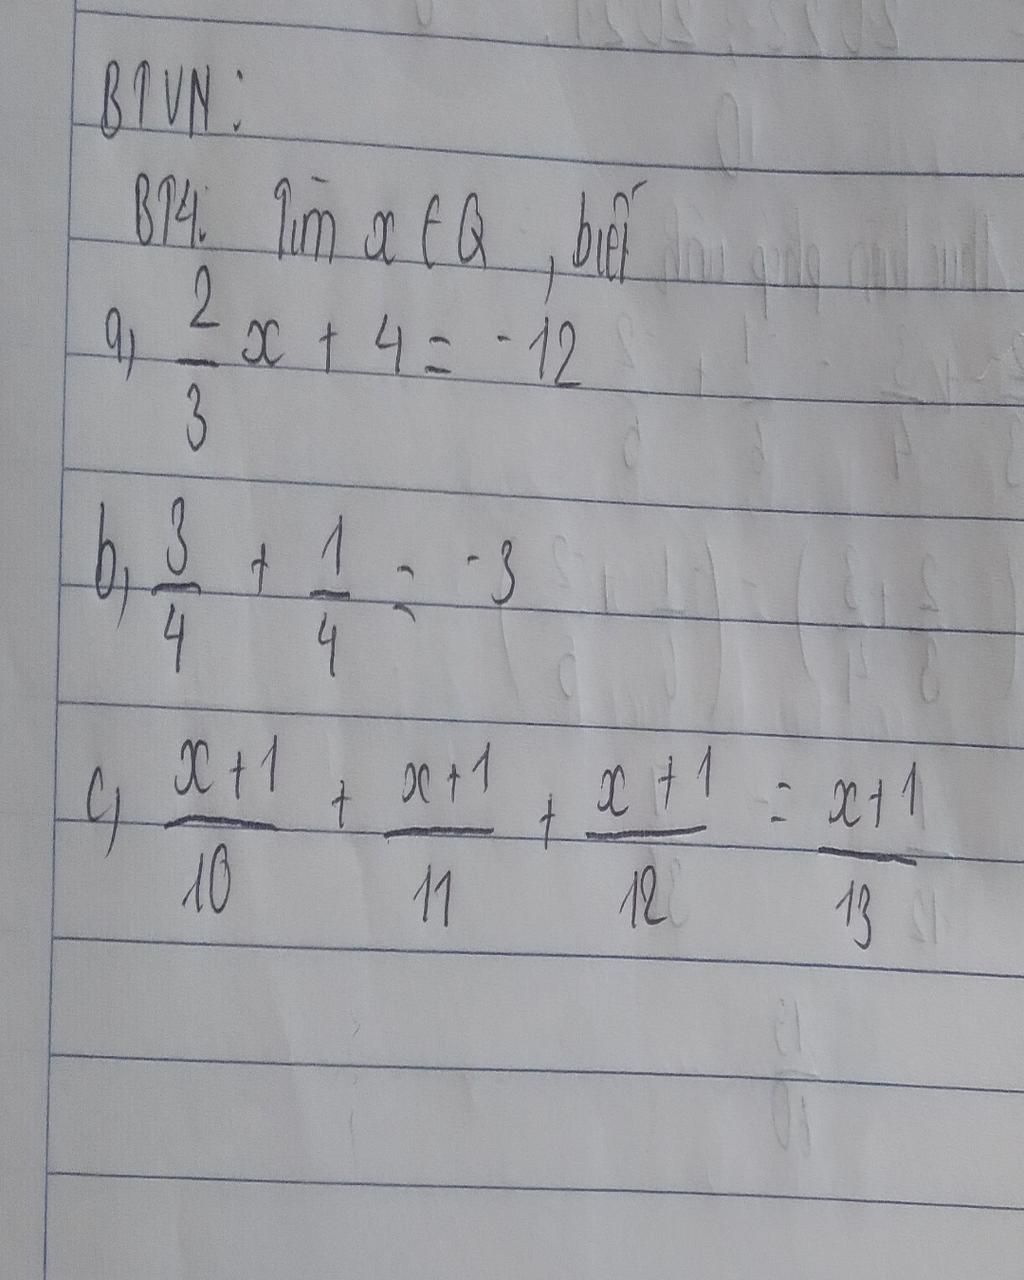 BTVN:
BT4: Tìm x ∈ Q, biết
a, 2/3 x + 4 = -12
b, 3/4 + 1/4 = -3
c, x+1/10 + x+1/11 + x+1/12 = x+1/13